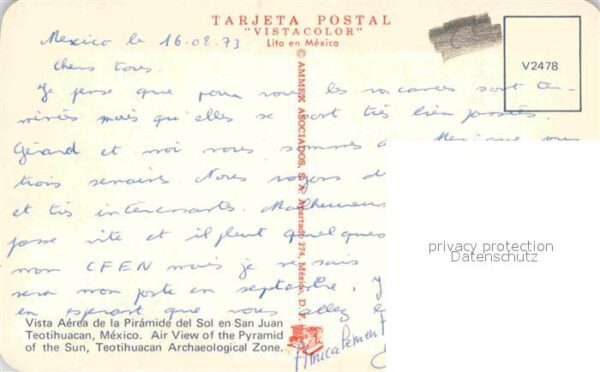 TARJETA POSTAL
"VISTACOLOR"
Lito en México
V2478
Mexico le 16.08.73
Chers tous.
Je pense que pour vous les vacances sont ter-
minées mais qu'elles se sont très bien passées.
Gérard et moi nous sommes
trois semaines Nous
et très intéressants. Malheureus
passe vite et il pleut quelques
mon CFEN mais je ne sais
sera mon poste en septembre.
en espérant que vous allez
Amicalement
© AMMEX ASOCIADOS, S. A. Apartado 274, México, D. F.
Vista Aérea de la Pirámide del Sol en San Juan
Teotihuacan, México. Air View of the Pyramid
of the Sun, Teotihuacan Archaeological Zone.
privacy protection
Datenschutz